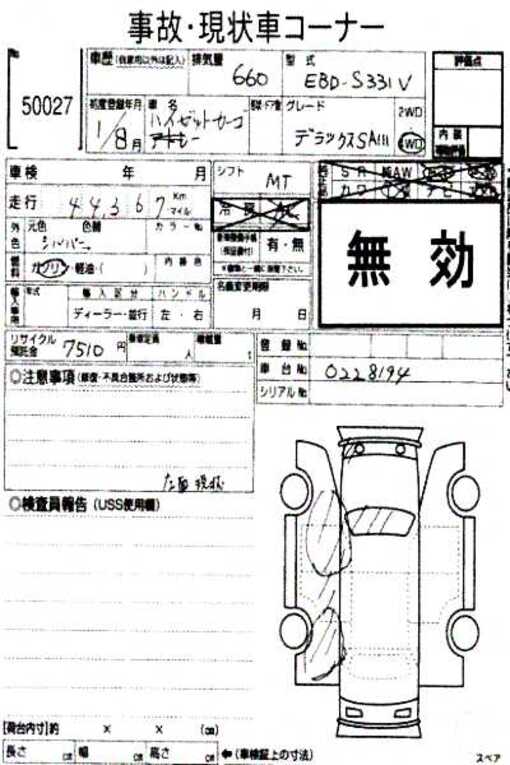 事故・現状車コーナー
No.
50027
車歴(自家用以外は記入)
排気量
660
型式
EBD-S331V
評価点
初度登録年月
1/8月
車名
ハイゼットカーゴ
ドア数
グレード
デラックスSAIII
2WD
4WD
内装
車検 年 月
シフト
MT
走行
44,367
Km
マイル
冷房 AC
SR AW
カワ ナビ
無効
外色
元色
シルバー
色替
カラーNo.
有・無
燃料
ガソリン・軽油・( )
内装色
名義変更期限
月 日
輸入車欄
年式
輸入区分
ディーラー・並行
ハンドル
左・右
リサイクル預託金
7510円
乗車定員
人
積載量
t
登録No.
車台No.
0228194
シリアルNo.
◎注意事項(修復・不具合箇所および状態等)
左面現状
◎検査員報告(USS使用欄)
[荷台内寸]約 × × (cm)
長さ cm 幅 cm 高さ cm
←(車検証上の寸法)
スペア